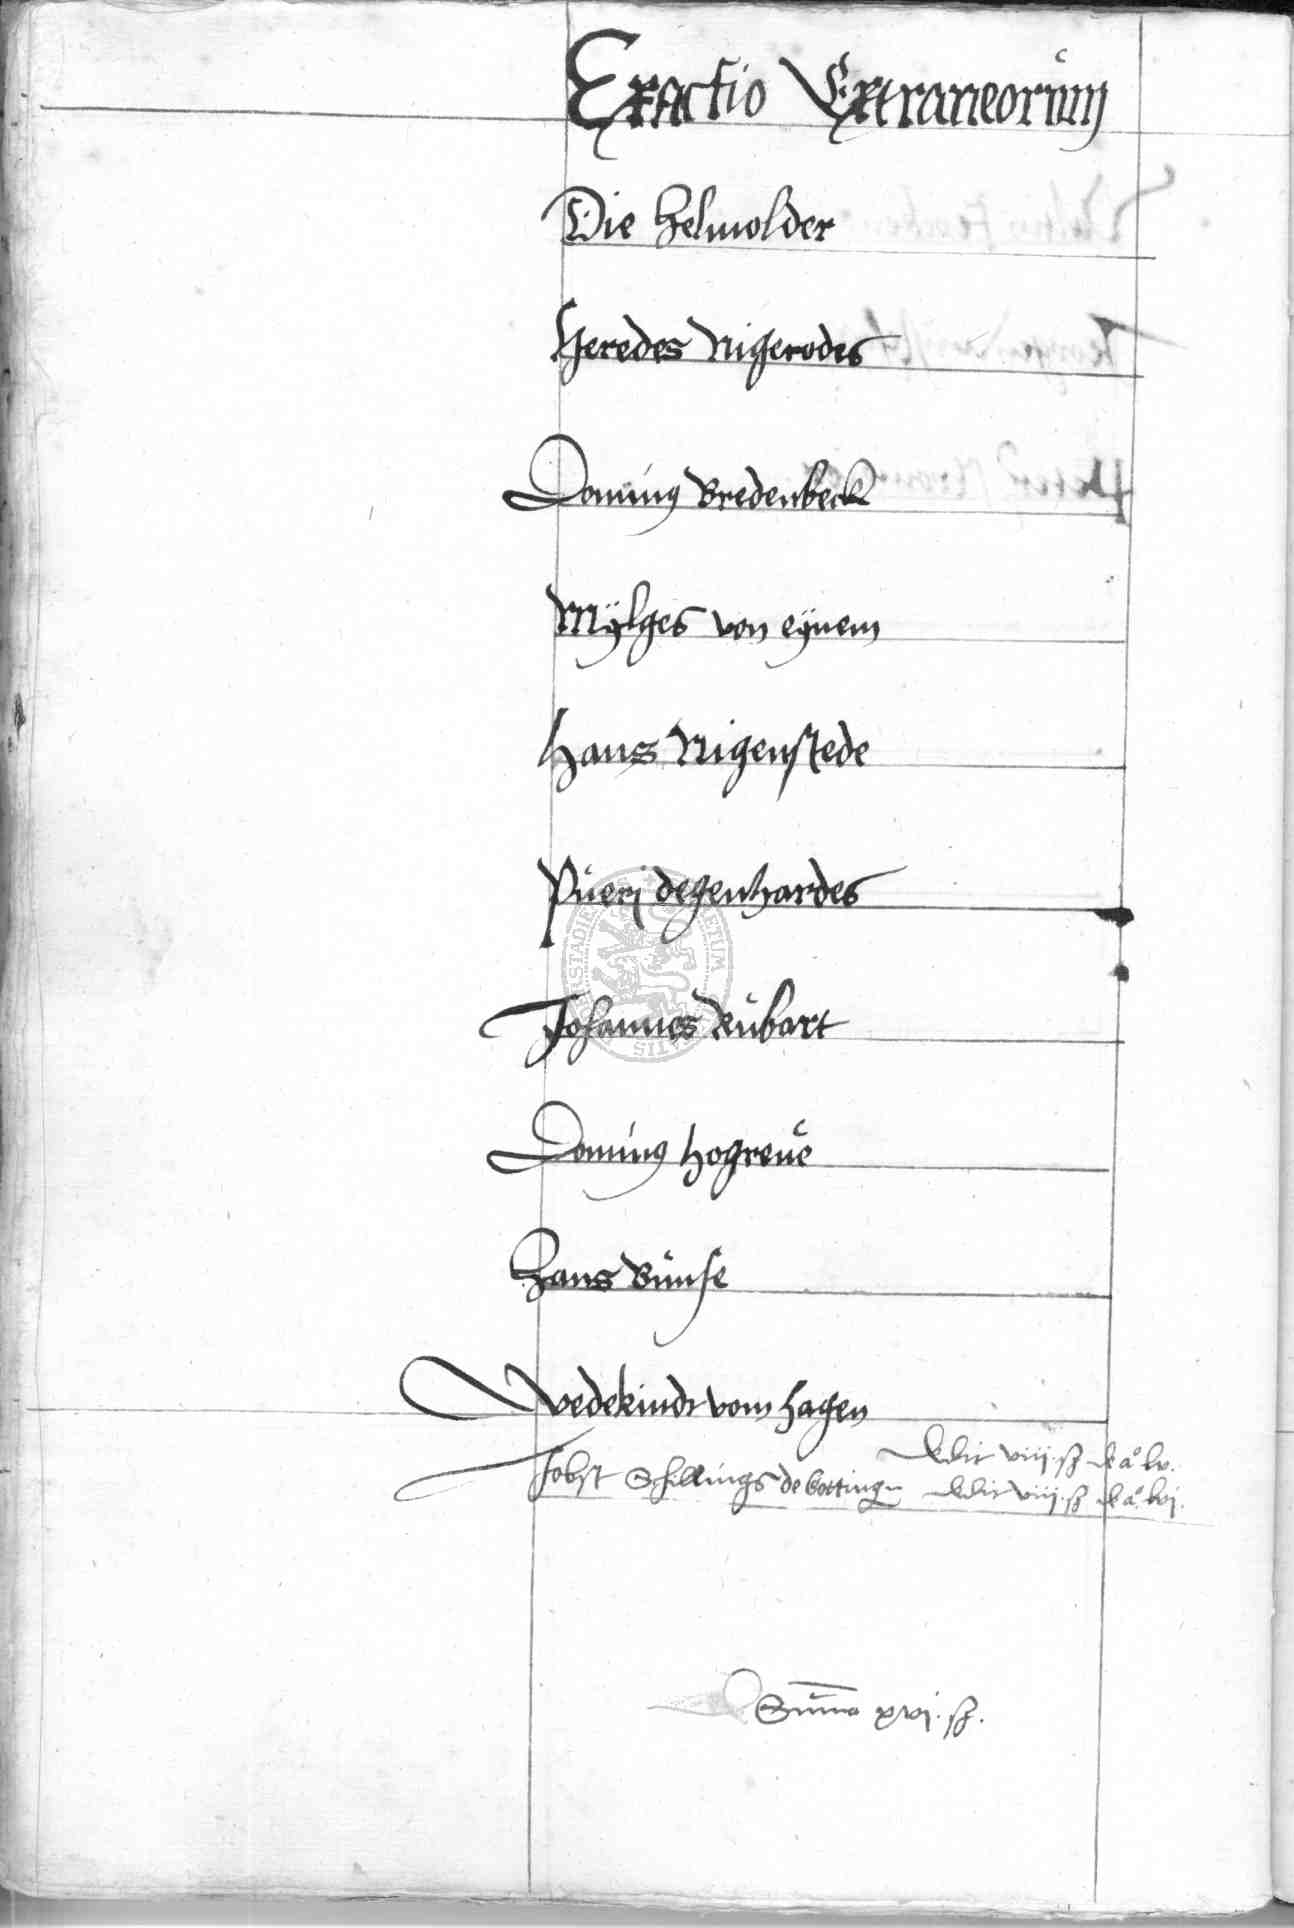 Exactio Extraneorum
Die Helmolder
Heredes Nigerodes
Dominus Bredenbeck
Mÿlges von eÿnem
Hans Nigenstede
Pueri degenhardes
Johannes Rubart
Dominus hogreue
Hans Bunse
Wedekindt vom Hagen
dedit viij ß de aº lv.
Jobst Schillings de Gottinge dedit viij ß de aº lvj.
Summa xvj. ß.